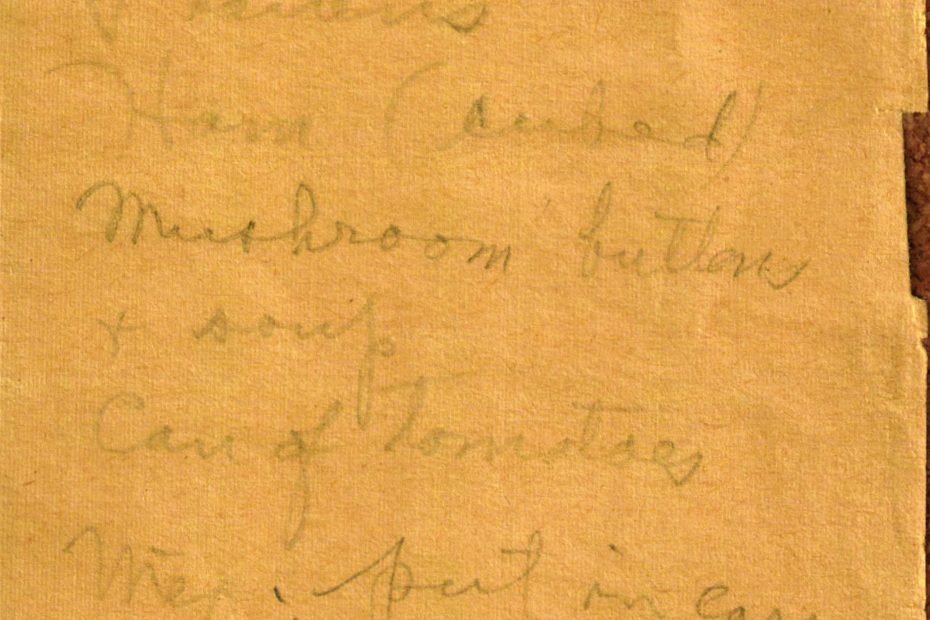 Ham (cubed)
Mushroom buttons
& soup
Can of tomatoes
put in